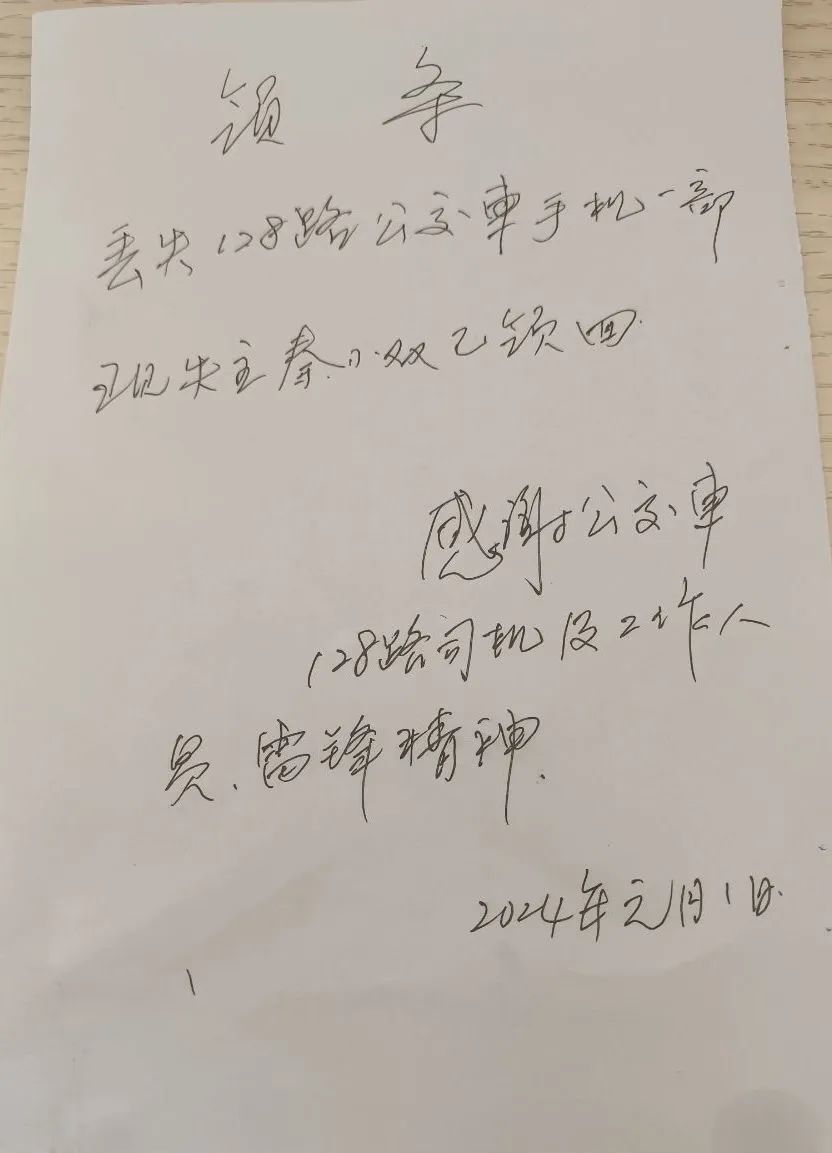 领条
丢失128路公交車手机一部
现失主秦小双已领回.
感谢公交車
128路司机及工作人
员、雷锋精神.
2024年元月1日.